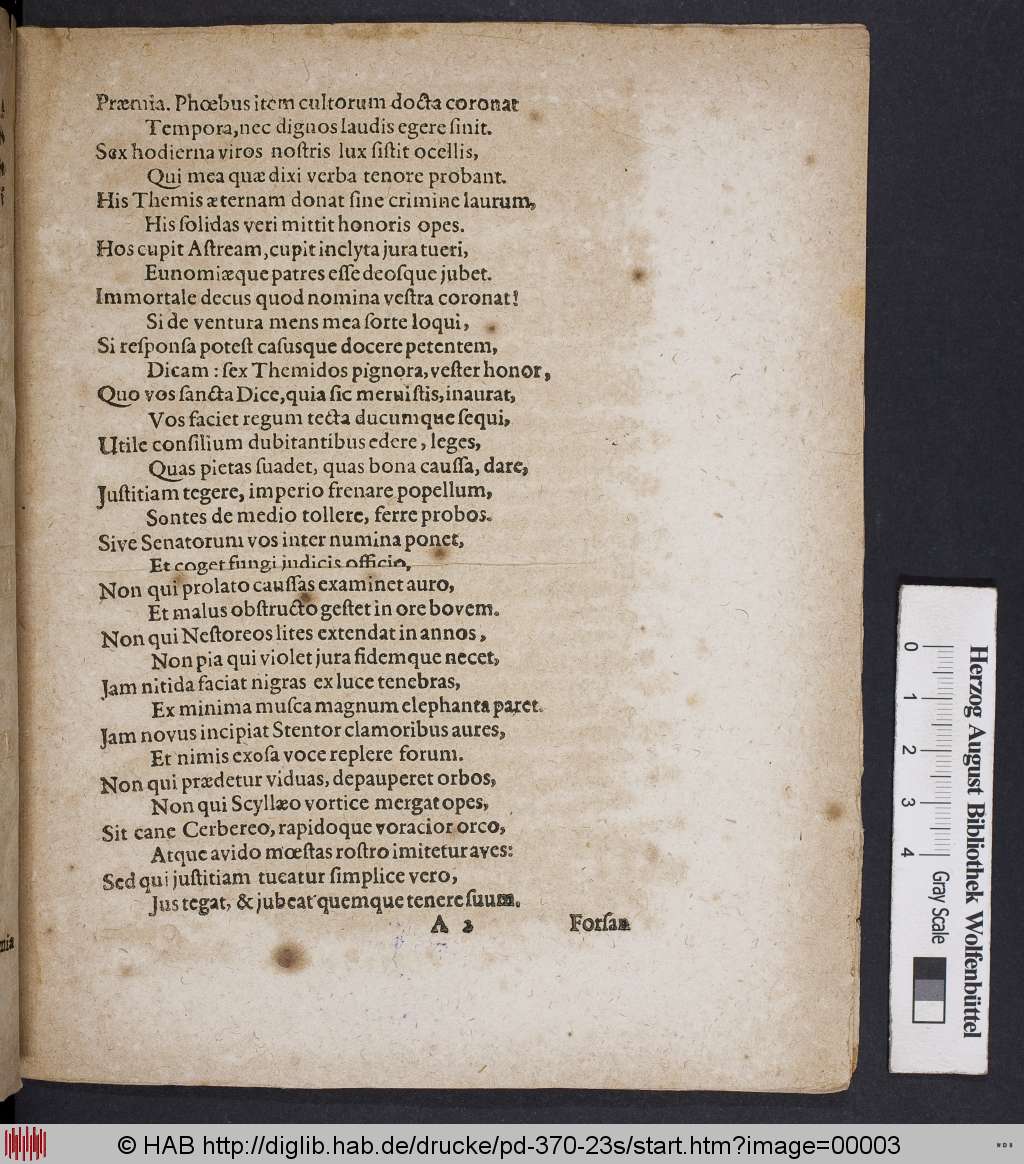 Præmia. Phœbus item cultorum docta coronat
Tempora, nec dignos laudis egere ſinit.
Sex hodierna viros noſtris lux ſiſtit ocellis,
Qui mea quæ dixi verba tenore probant.
His Themis æternam donat ſine crimine laurum,
His ſolidas veri mittit honoris opes.
Hos cupit Aſtream, cupit inclyta jura tueri,
Eunomiæque patres eſſe deoſque jubet.
Immortale decus quod nomina veſtra coronat!
Si de ventura mens mea ſorte loqui,
Si reſponſa poteſt caſusque docere petentem,
Dicam: ſex Themidos pignora, veſter honor,
Quo vos ſancta Dice, quia ſic meruiſtis, inaurat,
Vos faciet regum tecta ducumque ſequi,
Utile conſilium dubitantibus edere, leges,
Quas pietas ſuadet, quas bona cauſſa, dare,
Juſtitiam tegere, imperio frenare popellum,
Sontes de medio tollere, ferre probos.
Sive Senatorum vos inter numina ponet,
Et coget fungi judicis officio,
Non qui prolato cauſſas examinet auro,
Et malus obſtructo geſtet in ore bovem.
Non qui Neſtoreos lites extendat in annos,
Non pia qui violet jura fidemque necet,
Jam nitida faciat nigras ex luce tenebras,
Ex minima muſca magnum elephanta paret.
Jam novus incipiat Stentor clamoribus aures,
Et nimis exoſa voce replere forum.
Non qui prædetur viduas, depauperet orbos,
Non qui Scyllæo vortice mergat opes,
Sit cane Cerbereo, rapidoque voracior orco,
Atque avido mœſtas roſtro imitetur aves:
Sed qui juſtitiam tueatur ſimplice vero,
Jus tegat, & jubeat quemque tenere ſuum.
A 2 Forſan
0 1 2 3 4 Gray Scale
Herzog August Bibliothek Wolfenbüttel
© HAB http://diglib.hab.de/drucke/pd-370-23s/start.htm?image=00003